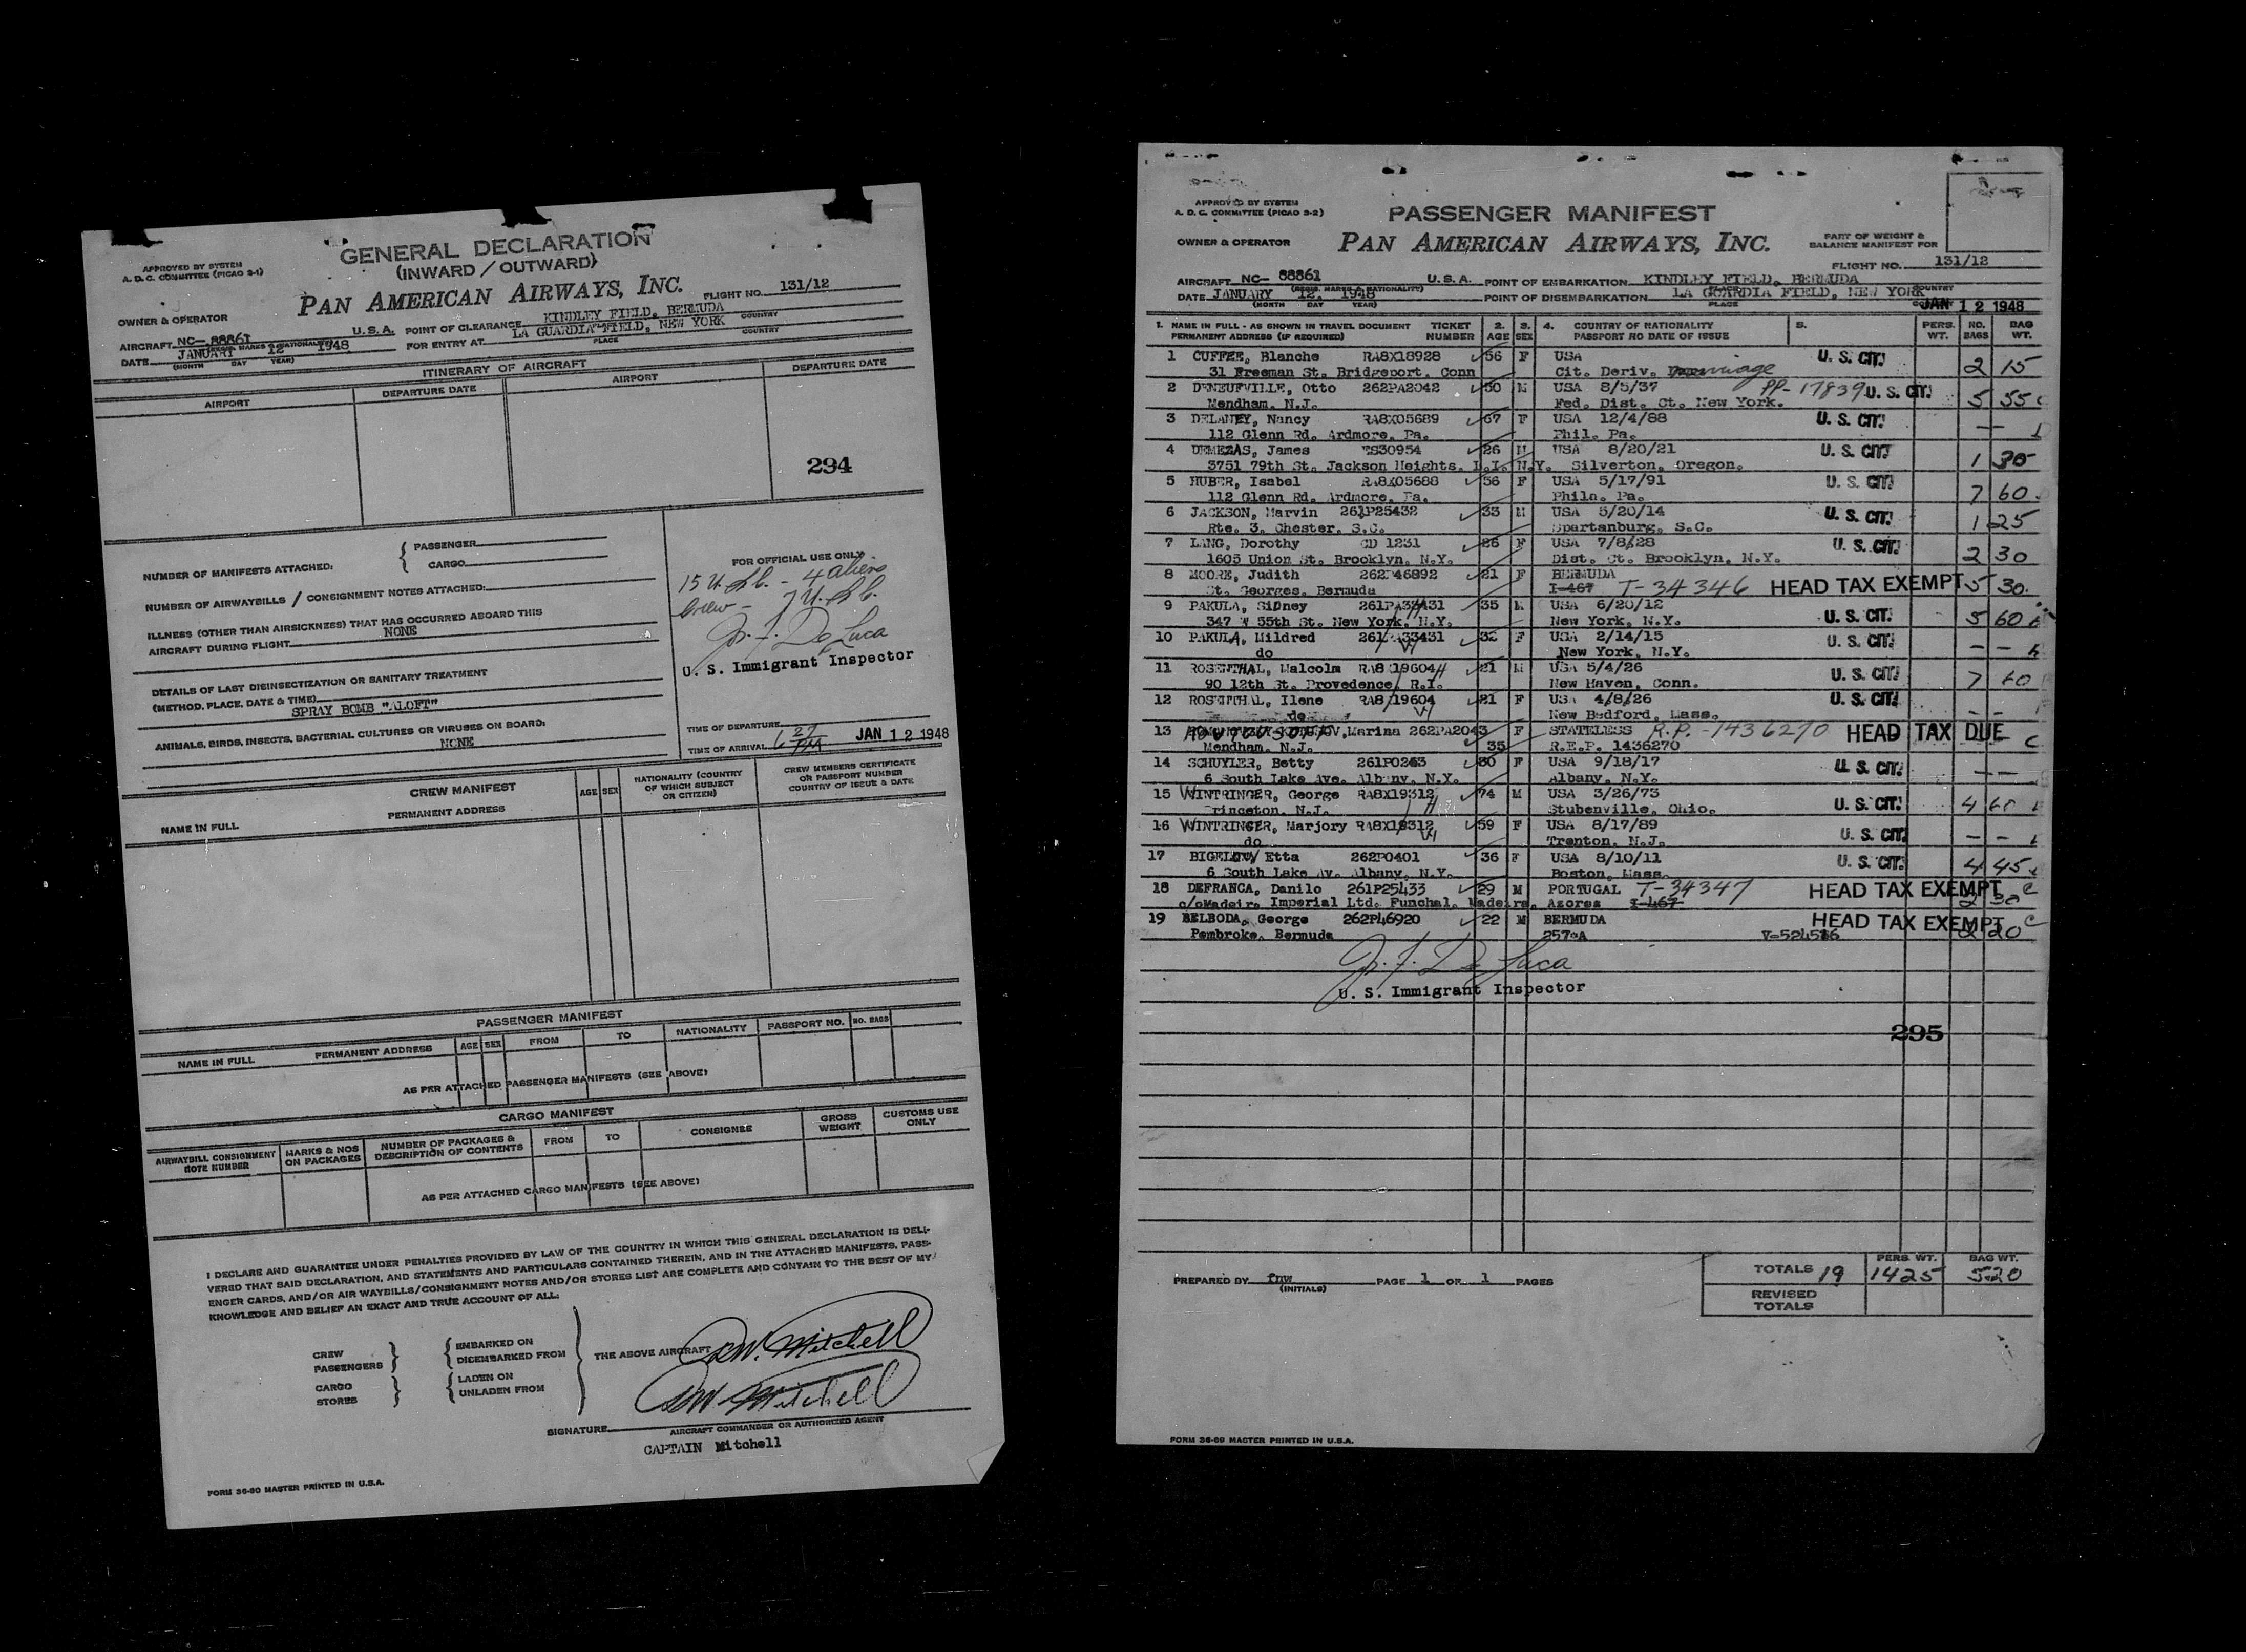 GENERAL DECLARATION
(INWARD / OUTWARD)
APPROVED BY SYSTEM
A. D. C. COMMITTEE (PICAO 3-1)
PAN AMERICAN AIRWAYS, INC.
FLIGHT NO. 131/12
OWNER & OPERATOR
AIRCRAFT NC- 88861 U.S.A. POINT OF CLEARANCE KINDLEY FIELD, BERMUDA
(REGIS. MARKS & NATIONALITY) COUNTRY
DATE JANUARY 12 1948 FOR ENTRY AT LA GUARDIA FIELD, NEW YORK
(MONTH DAY YEAR) PLACE COUNTRY
ITINERARY OF AIRCRAFT
AIRPORT DEPARTURE DATE AIRPORT DEPARTURE DATE
294
NUMBER OF MANIFESTS ATTACHED: { PASSENGER
CARGO
NUMBER OF AIRWAYBILLS / CONSIGNMENT NOTES ATTACHED:
ILLNESS (OTHER THAN AIRSICKNESS) THAT HAS OCCURRED ABOARD THIS
AIRCRAFT DURING FLIGHT NONE
DETAILS OF LAST DISINSECTIZATION OR SANITARY TREATMENT
(METHOD, PLACE, DATE & TIME)
SPRAY BOMB "ALOFT"
ANIMALS, BIRDS, INSECTS, BACTERIAL CULTURES OR VIRUSES ON BOARD:
NONE
FOR OFFICIAL USE ONLY
15 U. - 4 aliens
Crew - 7 U.
De Luca
U. S. Immigrant Inspector
TIME OF DEPARTURE
TIME OF ARRIVAL 6 27 PM JAN 12 1948
CREW MANIFEST
NAME IN FULL PERMANENT ADDRESS AGE SEX NATIONALITY (COUNTRY OF WHICH SUBJECT OR CITIZEN) CREW MEMBERS CERTIFICATE OR PASSPORT NUMBER COUNTRY OF ISSUE & DATE
PASSENGER MANIFEST
NAME IN FULL PERMANENT ADDRESS AGE SEX FROM TO NATIONALITY PASSPORT NO. NO. BAGS
AS PER ATTACHED PASSENGER MANIFESTS (SEE ABOVE)
CARGO MANIFEST
AIRWAYBILL CONSIGNMENT NOTE NUMBER MARKS & NOS ON PACKAGES NUMBER OF PACKAGES & DESCRIPTION OF CONTENTS FROM TO CONSIGNEE GROSS WEIGHT CUSTOMS USE ONLY
AS PER ATTACHED CARGO MANIFESTS (SEE ABOVE)
I DECLARE AND GUARANTEE UNDER PENALTIES PROVIDED BY LAW OF THE COUNTRY IN WHICH THIS GENERAL DECLARATION IS DELI-
VERED THAT SAID DECLARATION, AND STATEMENTS AND PARTICULARS CONTAINED THEREIN, AND IN THE ATTACHED MANIFESTS, PASS-
ENGER CARDS, AND/OR AIR WAYBILLS/CONSIGNMENT NOTES AND/OR STORES LIST ARE COMPLETE AND CONTAIN TO THE BEST OF MY
KNOWLEDGE AND BELIEF AN EXACT AND TRUE ACCOUNT OF ALL:
CREW
PASSENGERS
CARGO
STORES
EMBARKED ON
DISEMBARKED FROM
LADEN ON
UNLADEN FROM
THE ABOVE AIRCRAFT
Mitchell
Mitchell
SIGNATURE
AIRCRAFT COMMANDER OR AUTHORIZED AGENT
CAPTAIN Mitchell
FORM 36-80 MASTER PRINTED IN U.S.A.
APPROVED BY SYSTEM
A. D. C. COMMITTEE (PICAO 3-2)
PASSENGER MANIFEST
OWNER & OPERATOR PAN AMERICAN AIRWAYS, INC.
PART OF WEIGHT &
BALANCE MANIFEST FOR
FLIGHT NO. 131/12
AIRCRAFT NC- 88861 U.S.A. POINT OF EMBARKATION KINDLEY FIELD, BERMUDA
(REGIS. MARKS & NATIONALITY) PLACE COUNTRY
DATE JANUARY 12, 1948 POINT OF DISEMBARKATION LA GUARDIA FIELD, NEW YORK
(MONTH DAY YEAR) PLACE COUNTRY JAN 12 1948
1. NAME IN FULL - AS SHOWN IN TRAVEL DOCUMENT TICKET 2. 3. 4. COUNTRY OF NATIONALITY 5. PERS. NO. BAG
PERMANENT ADDRESS (IF REQUIRED) NUMBER AGE SEX PASSPORT NO DATE OF ISSUE WT. BAGS WT.
1 CUFFEE, Blanche RA8X18928 56 F USA U. S. CIT.
31 Freeman St. Bridgeport, Conn Cit. Deriv. marriage 2 15
2 DENEUFVILLE, Otto 262PA2042 50 M USA 8/5/37 PP-17839 U. S. CIT.
Mendham, N.J. Fed. Dist. Ct. New York. 5 55
3 DELANEY, Nancy RA8X05689 67 F USA 12/4/88 U. S. CIT.
112 Glenn Rd. Ardmore, Pa. Phil. Pa. —
4 DEMEZAS, James ES30954 26 M USA 8/20/21 U. S. CIT.
3751 79th St. Jackson Heights, L.I. N.Y. Silverton, Oregon. 1 30
5 HUBER, Isabel RA8X05688 56 F USA 5/17/91 U. S. CIT.
112 Glenn Rd. Ardmore, Pa. Phila. Pa. 7 60
6 JACKSON, Marvin 261P25432 33 M USA 5/20/14 U. S. CIT.
Rte. 3, Chester, S.C. Spartanburg, S.C. 1 25
7 LANG, Dorothy CD 1231 26 F USA 7/8/28 U. S. CIT.
1605 Union St. Brooklyn, N.Y. Dist. Ct. Brooklyn, N.Y. 2 30
8 MOORE, Judith 262P46892 21 F BERMUDA
St. Georges, Bermuda I-467 T-34346 HEAD TAX EXEMPT 5 30
9 PAKULA, Sidney 261PA33431 35 M USA 6/20/12
347 W 55th St. New York, N.Y. New York, N.Y. U. S. CIT. 5 60
10 PAKULA, Mildred 261PA33431 32 F USA 2/14/15 U. S. CIT.
do New York, N.Y. — —
11 ROSENTHAL, Malcolm RA8X19604 21 M USA 5/4/26
90 12th St. Provedence, R.I. New Haven, Conn. U. S. CIT. 7 60
12 ROSENTHAL, Ilene RA8X19604 21 F USA 4/8/26 U. S. CIT.
do New Bedford, Mass. — —
13 Marina 262PA2043 F STATELESS R.P. -1436270 HEAD TAX DUE
Mendham, N.J. 35 R.E.P. 1436270
14 SCHUYLER, Betty 261P0263 30 F USA 9/18/17 U. S. CIT.
6 South Lake Ave. Albany, N.Y. Albany, N.Y. — —
15 WINTRINGER, George RA8X19312 74 M USA 3/26/73
Princeton, N.J. Stubenville, Ohio. U. S. CIT. 4 60
16 WINTRINGER, Marjory RA8X19312 59 F USA 8/17/89
do Trenton, N.J. U. S. CIT. — —
17 BIGELOW, Etta 262P0401 36 F USA 8/10/11
6 South Lake Av. Albany, N.Y. Boston, Mass. U. S. CIT. 4 45
18 DEFRANCA, Danilo 261P25433 29 M PORTUGAL T-34347 HEAD TAX EXEMPT
c/o Madeira Imperial Ltd. Funchal, Madeira, Azores I-467 2 30
19 BELBODA, George 262P46920 22 M BERMUDA HEAD TAX EXEMPT
Pembroke, Bermuda 257aA V-524516 2 20
De Luca
U. S. Immigrant Inspector
295
PREPARED BY fnw PAGE 1 OF 1 PAGES
(INITIALS)
PERS. WT. BAG WT.
TOTALS 19 1425 520
REVISED
TOTALS
FORM 36-69 MASTER PRINTED IN U.S.A.